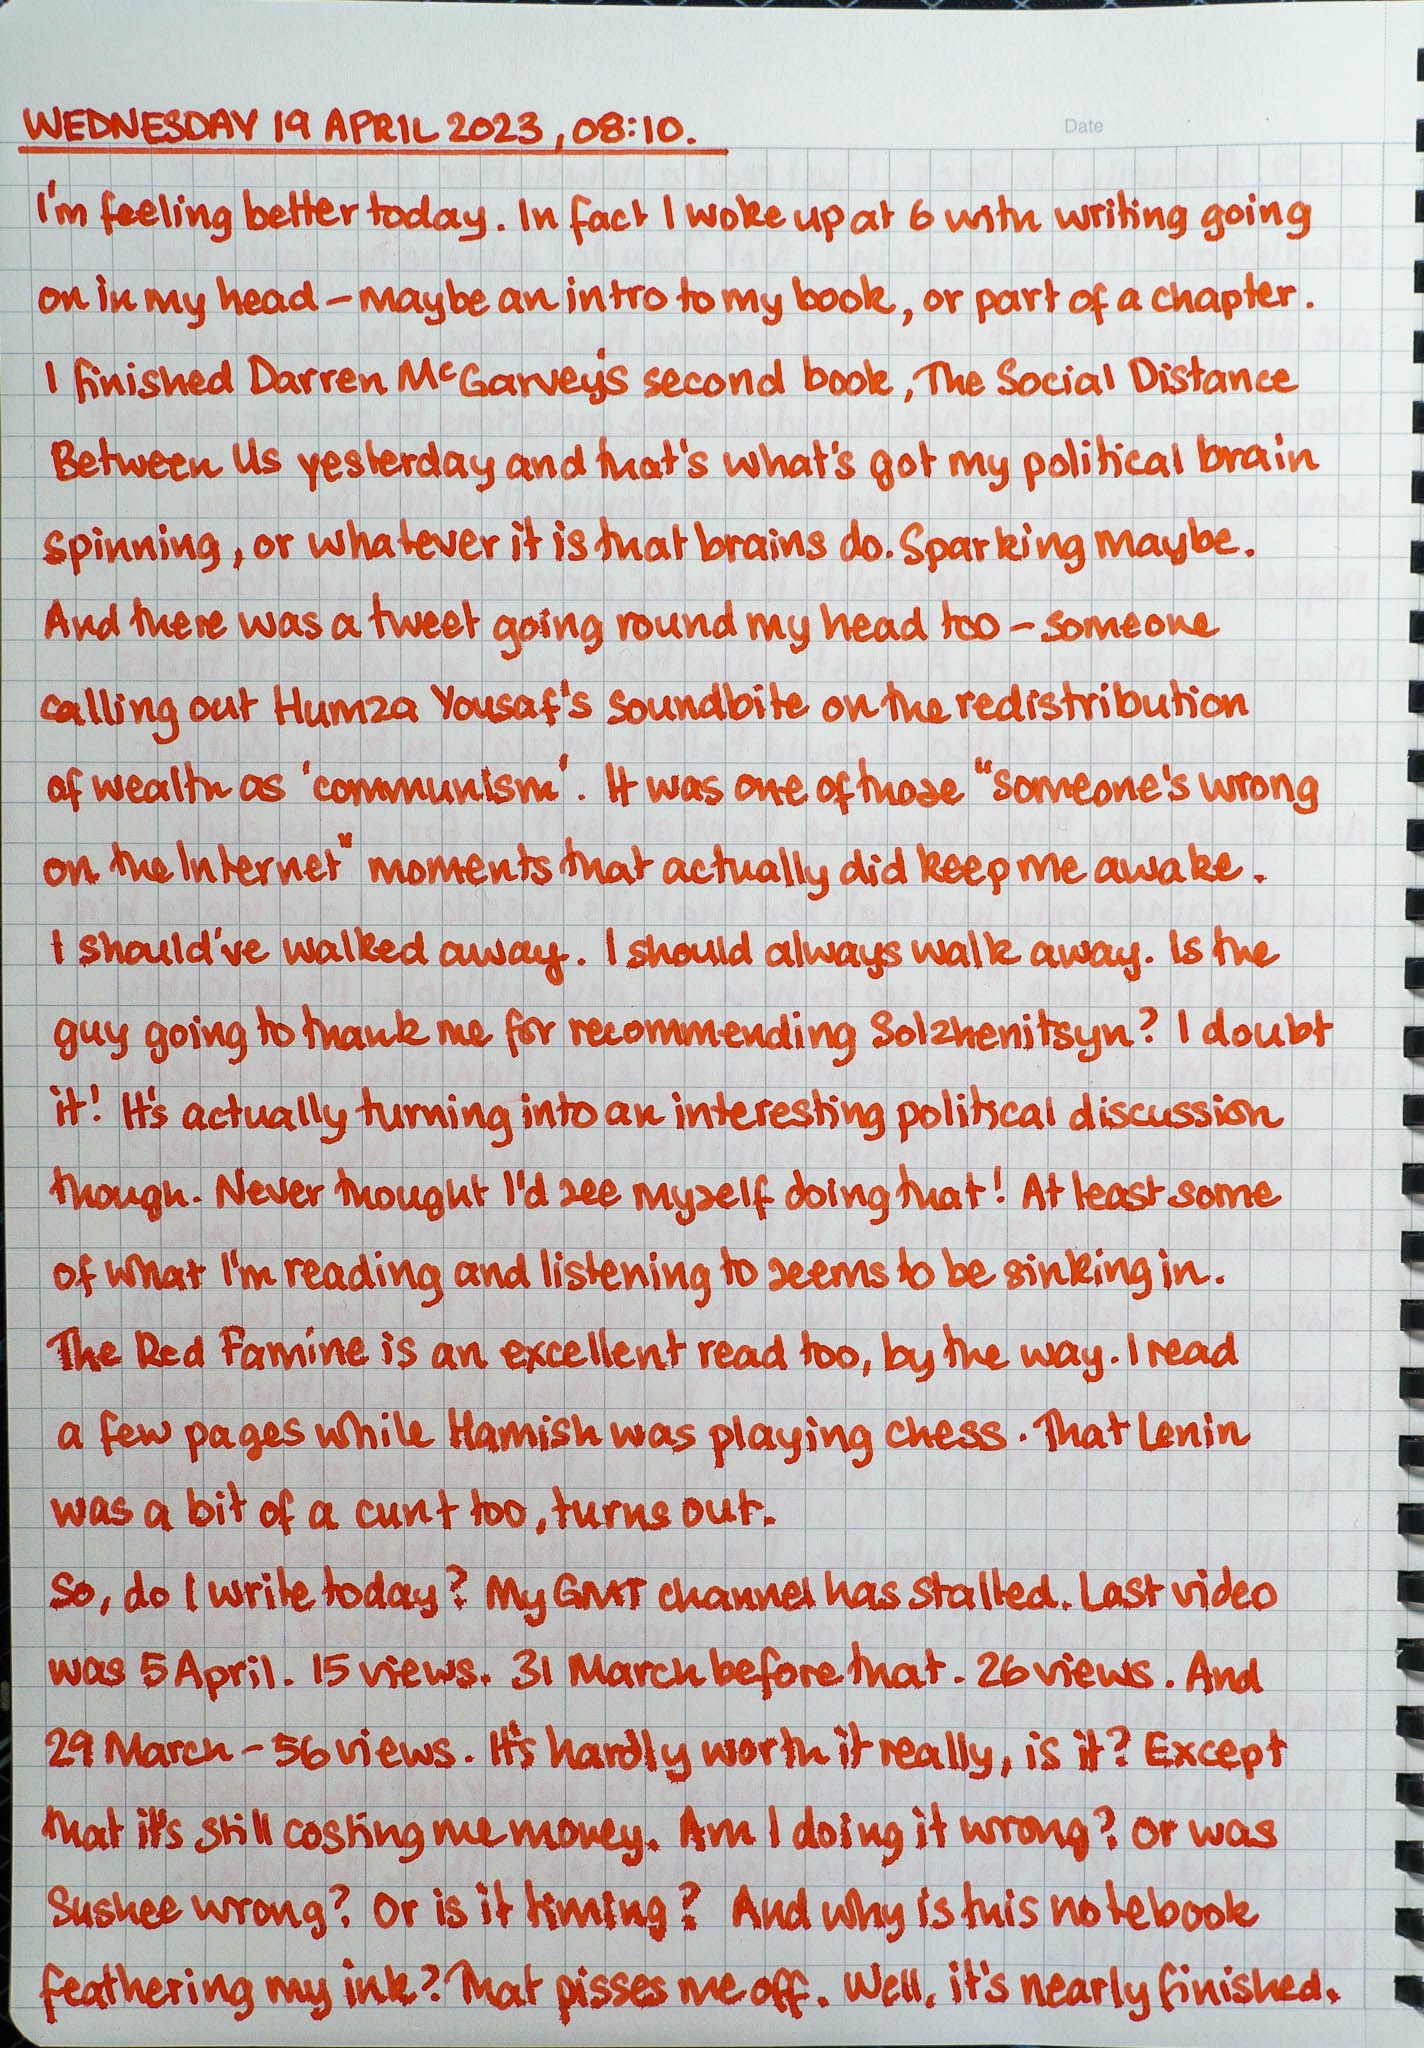 WEDNESDAY 19 APRIL 2023, 08:10.
Date
I'm feeling better today. In fact I woke up at 6 with writing going
on in my head – maybe an intro to my book, or part of a chapter.
I finished Darren McGarvey's second book, The Social Distance
Between Us yesterday and that's what's got my political brain
spinning, or whatever it is that brains do. Sparking maybe.
And there was a tweet going round my head too – someone
calling out Humza Yousaf's soundbite on the redistribution
of wealth as 'communism'. It was one of those "someone's wrong
on the Internet" moments that actually did keep me awake.
I should've walked away. I should always walk away. Is the
guy going to thank me for recommending Solzhenitsyn? I doubt
it! It's actually turning into an interesting political discussion
though. Never thought I'd see myself doing that! At least some
of what I'm reading and listening to seems to be sinking in.
The Red Famine is an excellent read too, by the way. I read
a few pages while Hamish was playing chess. That Lenin
was a bit of a cunt too, turns out.
So, do I write today? My GMT channel has stalled. Last video
was 5 April. 15 views. 31 March before that. 26 views. And
29 March – 56 views. It's hardly worth it really, is it? Except
that it's still costing me money. Am I doing it wrong? Or was
Sushee wrong? Or is it timing? And why is this notebook
feathering my ink? That pisses me off. Well, it's nearly finished.